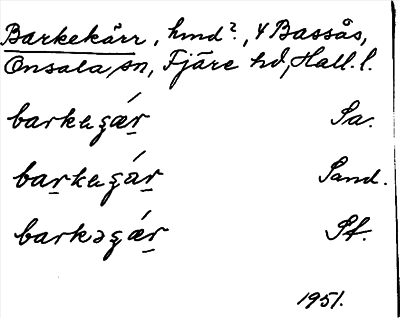 Barkekärr, hmd?, 4 Bassås,
Onsala sn, Fjäre hd, Hall. l.
barkegǽr Sa.
barkegár Sand.
barkəgǽr St.
1951.